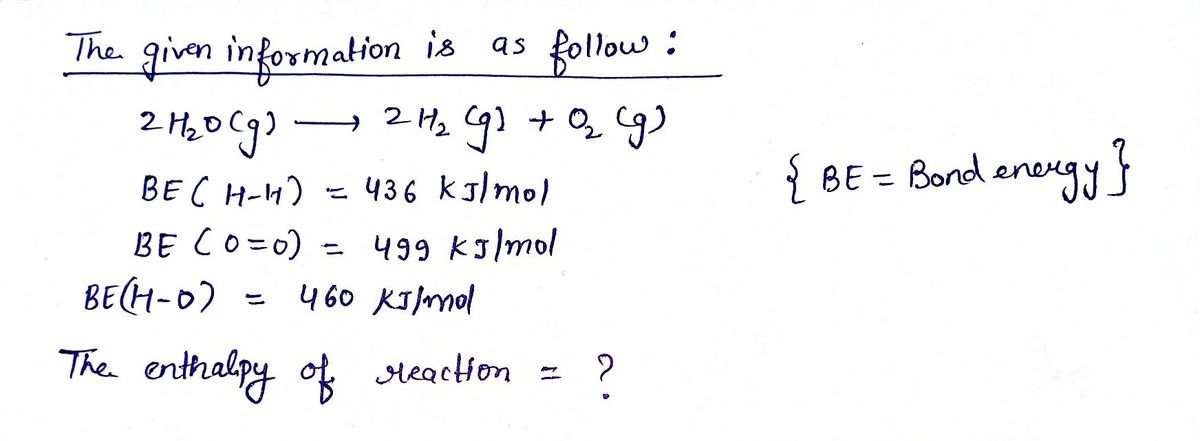 The given information is as follow :
2 H₂O (g) ⟶ 2 H₂ (g) + O₂ (g)
BE ( H-H) = 436 kJ/mol
{ BE = Bond energy }
BE ( O=O) = 499 kJ/mol
BE(H-O) = 460 KJ/mol
The enthalpy of reaction = ?